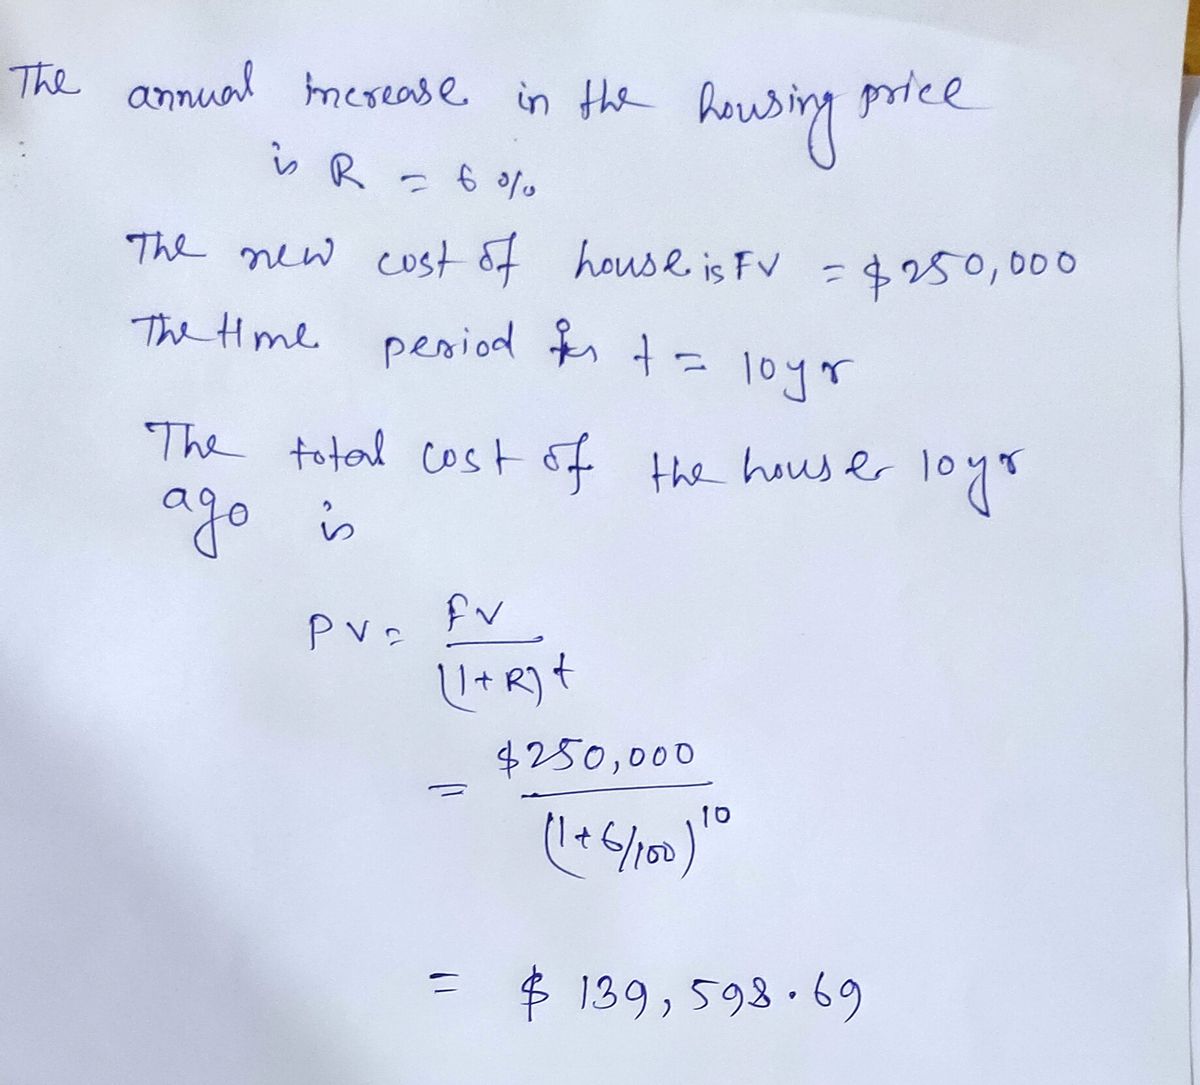 The annual increase in the housing price
is R = 6%
The new cost of house is FV = $250,000
The time period for t = 10yr
The total cost of the house 10yr
ago is
PV = FV
(1+R)t
= $250,000
(1+6/100)^10
= $ 139,598.69